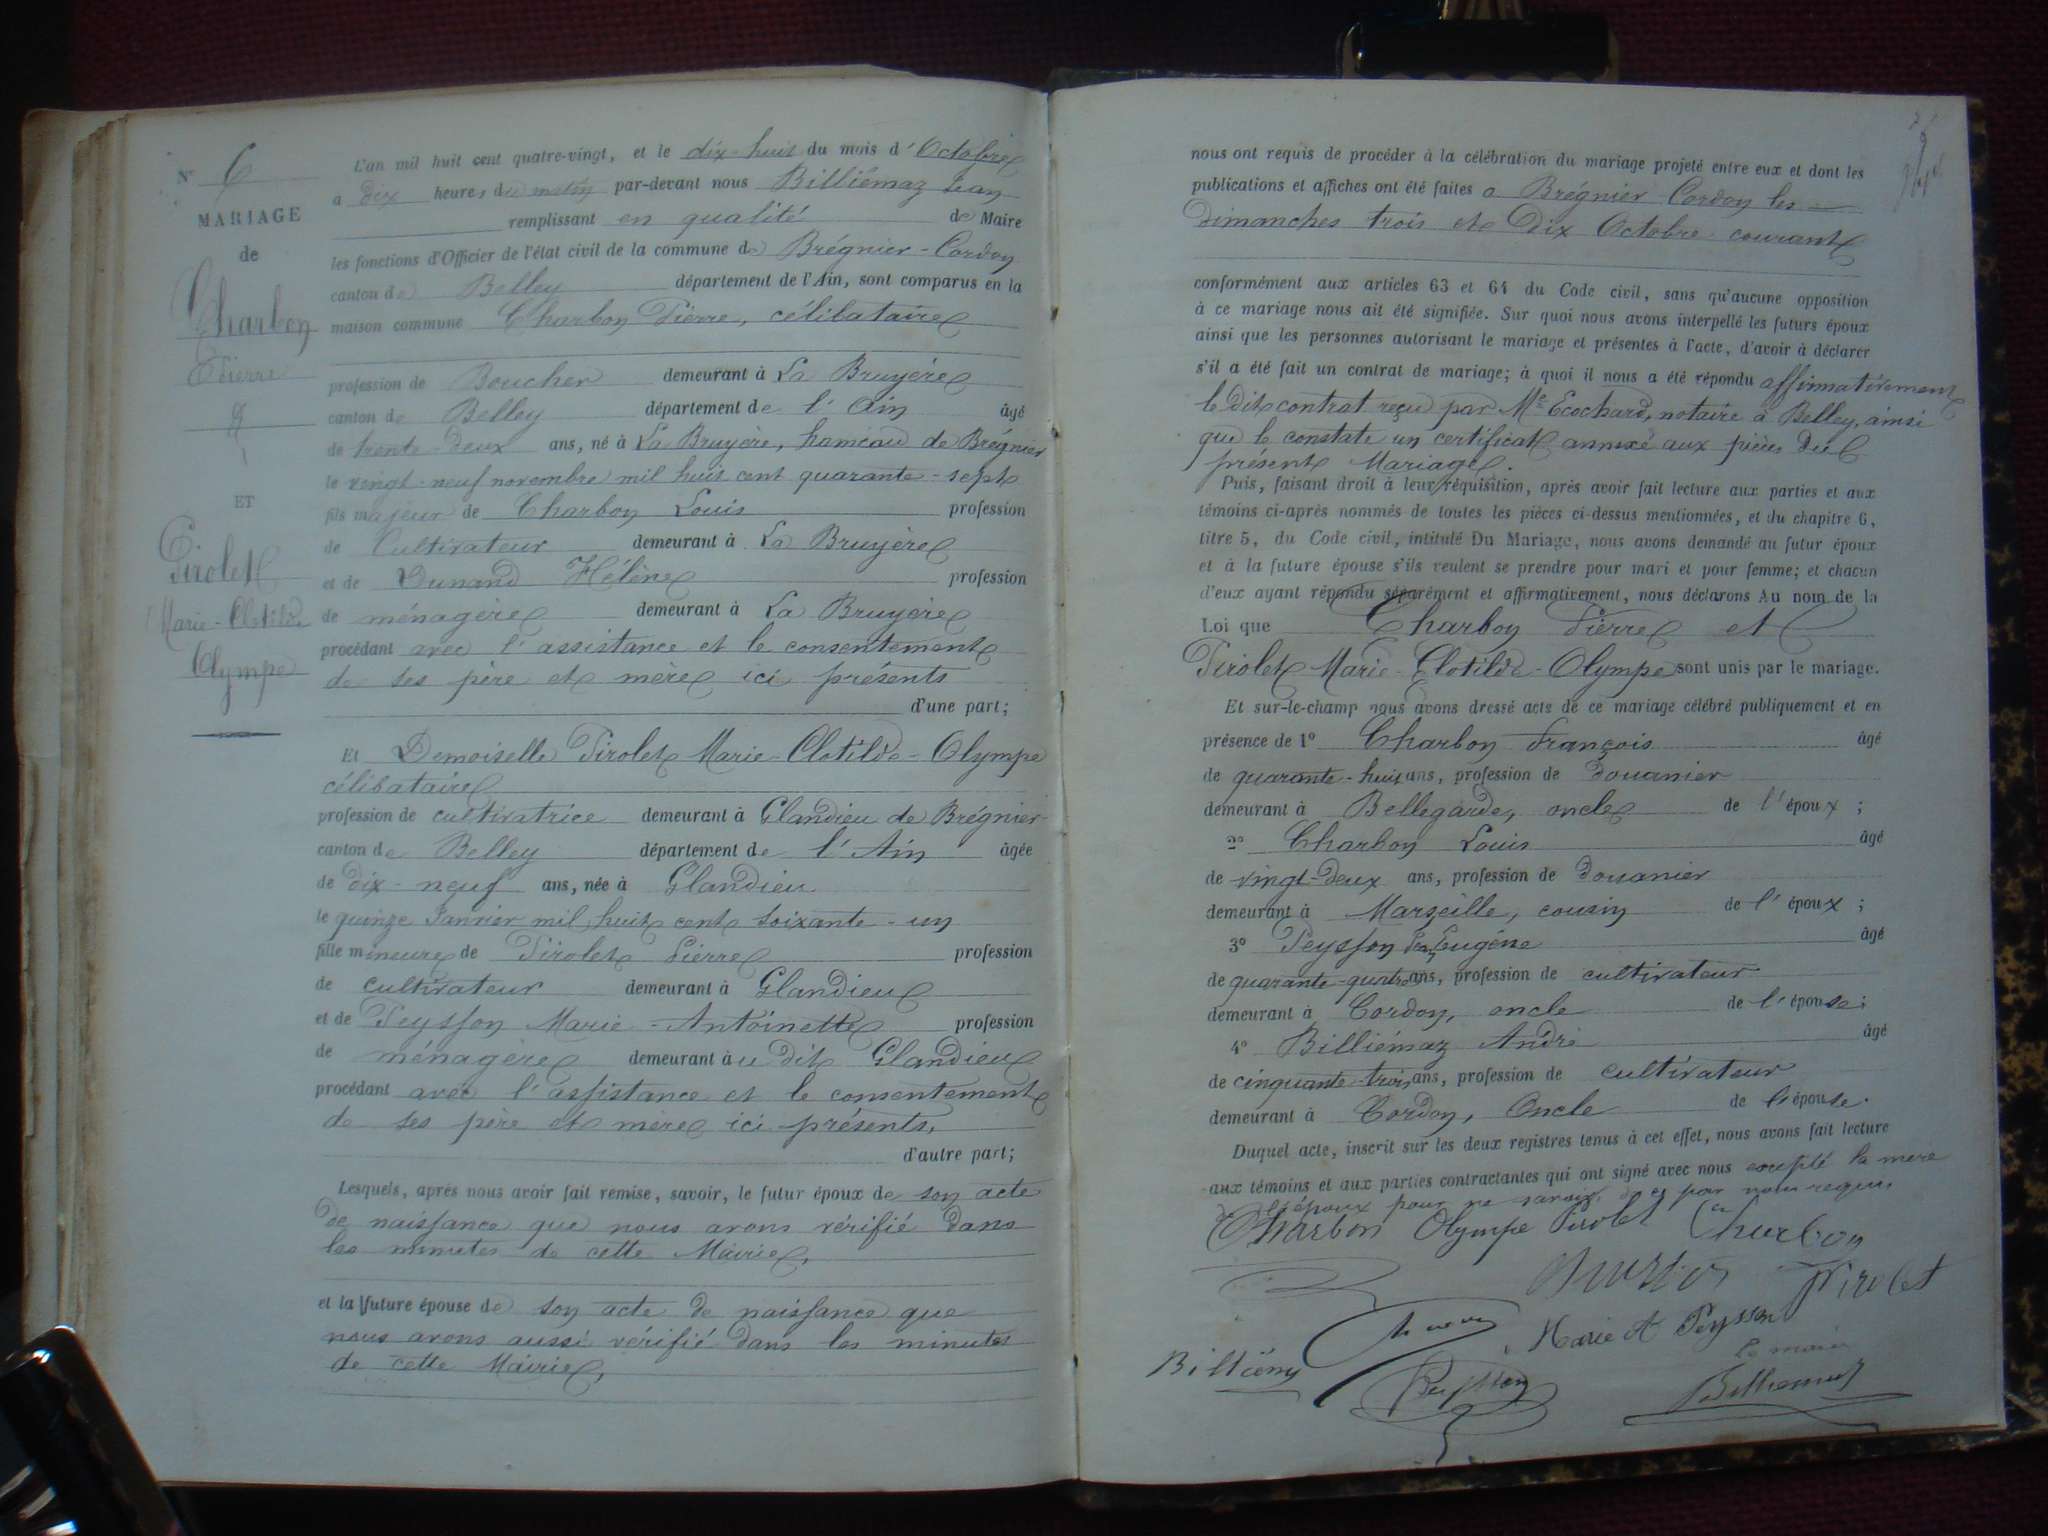 N° 6
MARIAGE
de
Charbon
Pierre
&
ET
Pirolet
Marie-Clotilde
Olympe
L'an mil huit cent quatre-vingt, et le dix-huit du mois d'Octobre
a dix heures du matin par-devant nous Billiémaz Jean
remplissant en qualité de Maire
les fonctions d'Officier de l'état civil de la commune de Brégnier-Cordon
canton de Belley département de l'Ain, sont comparus en la
maison commune Charbon Pierre, célibataire
profession de Boucher demeurant à La Bruyère
canton de Belley département de l'Ain âgé
de trente-deux ans, né à La Bruyère, hameau de Brégnier
le vingt-neuf novembre mil huit cent quarante-sept
fils majeur de Charbon Louis profession
de Cultivateur demeurant à La Bruyère
et de Dunand Hélène profession
de ménagère demeurant à La Bruyère
procédant avec l'assistance et le consentement
de ses père et mère ici présents
d'une part;
Et Demoiselle Pirolet Marie-Clotilde-Olympe
célibataire
profession de cultivatrice demeurant à Glandieu de Brégnier-
canton de Belley département de l'Ain âgée
de dix-neuf ans, née à Glandieu
le quinze Janvier mil huit cent soixante-un
fille mineure de Pirolet Pierre profession
de cultivateur demeurant à Glandieu
et de Peysson Marie-Antoinette profession
de ménagère demeurant au dit Glandieu
procédant avec l'assistance et le consentement
de ses père et mère ici présents,
d'autre part;
Lesquels, après nous avoir fait remise, savoir, le futur époux de son acte
de naissance que nous avons vérifié dans
les minutes de cette Mairie,
et la future épouse de son acte de naissance que
nous avons aussi vérifié dans les minutes
de cette Mairie,
nous ont requis de procéder à la célébration du mariage projeté entre eux et dont les
publications et affiches ont été faites a Brégnier Cordon les
dimanches trois et dix Octobre courant
conformément aux articles 63 et 64 du Code civil, sans qu'aucune opposition
à ce mariage nous ait été signifiée. Sur quoi nous avons interpellé les futurs époux
ainsi que les personnes autorisant le mariage et présentes à l'acte, d'avoir à déclarer
s'il a été fait un contrat de mariage; à quoi il nous a été répondu affirmativement
le dit contrat reçu par Me Ecochard, notaire à Belley, ainsi
que le constate un certificat annexé aux pièces du
présent Mariage.
Puis, faisant droit à leur réquisition, après avoir fait lecture aux parties et aux
témoins ci-après nommés de toutes les pièces ci-dessus mentionnées, et du chapitre 6,
titre 5, du Code civil, intitulé Du Mariage, nous avons demandé au futur époux
et à la future épouse s'ils veulent se prendre pour mari et pour femme; et chacun
d'eux ayant répondu séparément et affirmativement, nous déclarons Au nom de la
Loi que Charbon Pierre et
Pirolet Marie-Clotilde-Olympe sont unis par le mariage.
Et sur-le-champ nous avons dressé acte de ce mariage célébré publiquement et en
présence de 1° Charbon François âgé
de quarante-huit ans, profession de douanier
demeurant à Bellegarde, oncle de l'époux;
2° Charbon Louis âgé
de vingt-deux ans, profession de douanier
demeurant à Marseille, cousin de l'époux;
3° Peysson Jean Eugène âgé
de quarante-quatre ans, profession de cultivateur
demeurant à Cordon, oncle de l'épouse;
4° Billiémaz André âgé
de cinquante-trois ans, profession de cultivateur
demeurant à Cordon, Oncle de l'épouse.
Duquel acte, inscrit sur les deux registres tenus à cet effet, nous avons fait lecture
aux témoins et aux parties contractantes qui ont signé avec nous excepté la mère
de l'époux pour ne savoir, de ce par nous requis
Charbon Olympe Pirolet Charbon
Pirolet
Marie A Peysson
Peysson
Le maire
Billiemaz